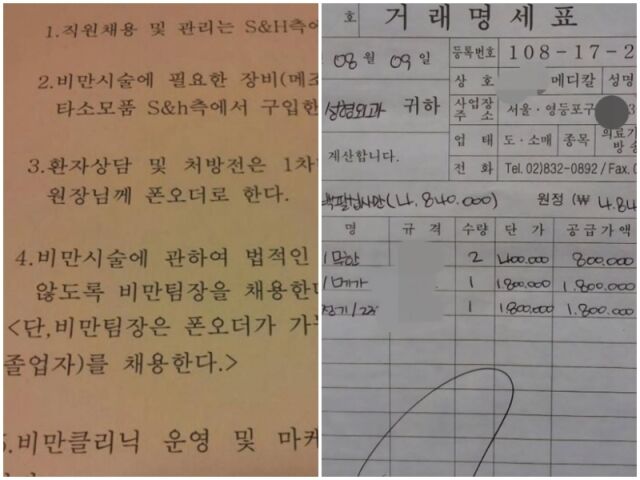 1.직원채용 및 관리는 S&H측에
2.비만시술에 필요한 장비(메조
타소모품 S&h측에서 구입한
3.환자상담 및 처방전은 1차
원장님께 폰오더로 한다.
4.비만시술에 관하여 법적인
않도록 비만팀장을 채용한다
<단,비만팀장은 폰오더가 가능
졸업자)를 채용한다.>
5.비만클리닉 운영 및 마케
호 거래명세표
08월 09일 등록번호 108-17-2
상호 메디칼 성명
성형외과 귀하 사업장 주소 서울·영등포구 3
업태 도·소매 종목 의료기
방송
계산합니다.
전화 Tel. 02)832-0892/Fax. 0
(4,840,000) 원정 (₩ 4.84
명 규격 수량 단가 공급가액
2 400,000 800,000
1 1,800,000 1,800,000
1 1,800,000 1,800,000